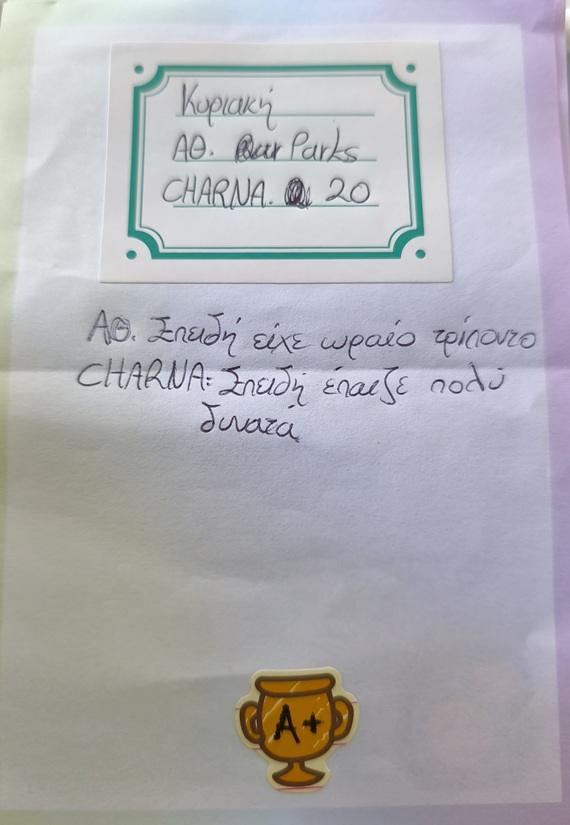 Κυριακή
ΑΘ. Parks
CHARNA. 20
ΑΘ. Επειδή είχε ωραίο τρίποντο
CHARNA: Επειδή έπαιζε πολύ
δυνατά
A+